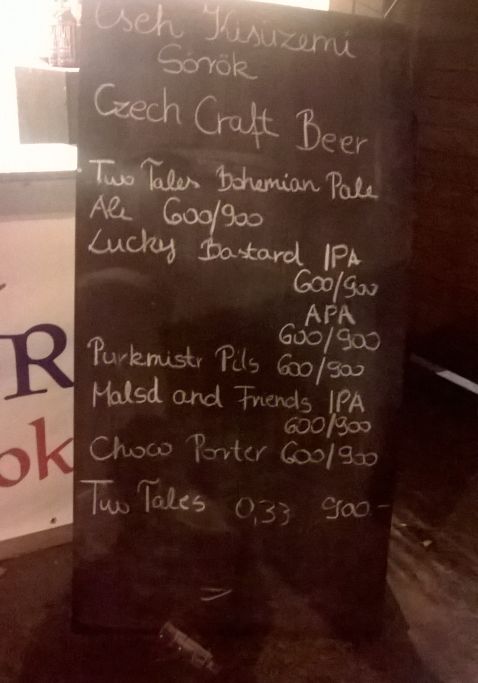 Cseh Kisüzemi
Sörök
Czech Craft Beer
Two Tales Bohemian Pale
Ale 600/900
Lucky Bastard IPA
600/900
APA
600/900
Purkmistr Pils 600/900
Malsd and Friends IPA
600/900
Choco Porter 600/900
Two Tales 0,33 900.-
R
ok